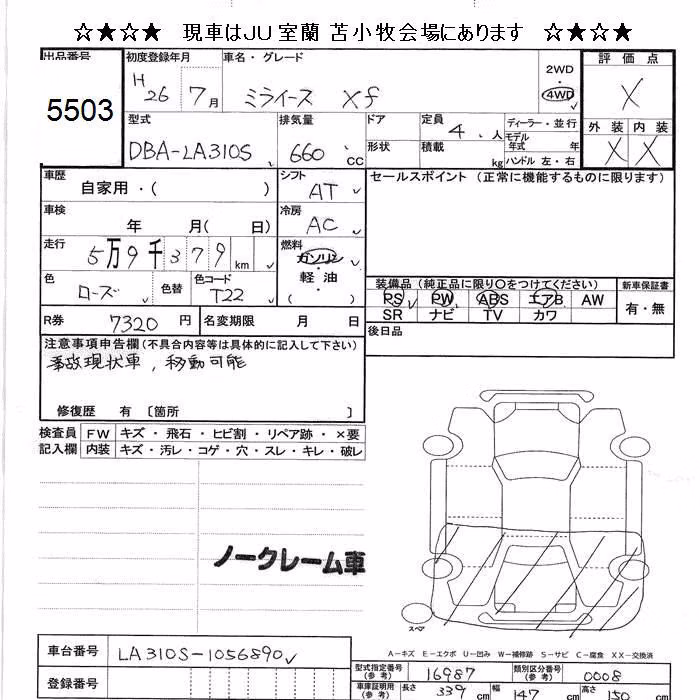 ☆★☆★ 現車はJU室蘭 苫小牧会場にあります ☆★☆★
出品番号
5503
初度登録年月
H26 7月
車名・グレード
ミライース Xf
2WD
・
4WD
評価点
X
外装 内装
X X
型式
DBA-LA310S
排気量
660 cc
ドア
形状
定員
4 人
積載
kg
ディーラー・並行
モデル
年式 年
ハンドル 左・右
車歴
自家用・( )
シフト
AT
セールスポイント (正常に機能するものに限ります)
車検
年 月( 日)
冷房
AC
走行
5万9千379km
燃料
ガソリン
・
軽油
・
( )
色
ローズ
色替
色コード
T22
装備品 (純正品に限り○をつけてください)
PS PW ABS エアB AW
SR ナビ TV カワ
新車保証書
有・無
R券 7320円
名変期限 月 日
後日品
注意事項申告欄(不具合内容等は具体的に記入して下さい)
事故現状車, 移動可能
修復歴 有〔箇所 〕
検査員
記入欄
FW キズ・飛石・ヒビ割・リペア跡・×要
内装 キズ・汚レ・コゲ・穴・スレ・キレ・破レ
ノークレーム車
スペア
A-キズ E-エクボ U-凹み W-補修跡 S-サビ C-腐食 XX-交換済
車台番号 LA310S-1056890
登録番号
型式指定番号
(参考)
16987
類別区分番号
(参考)
0008
車庫証明用
(参考)
長さ 339 cm 幅 147 cm 高さ 150 cm